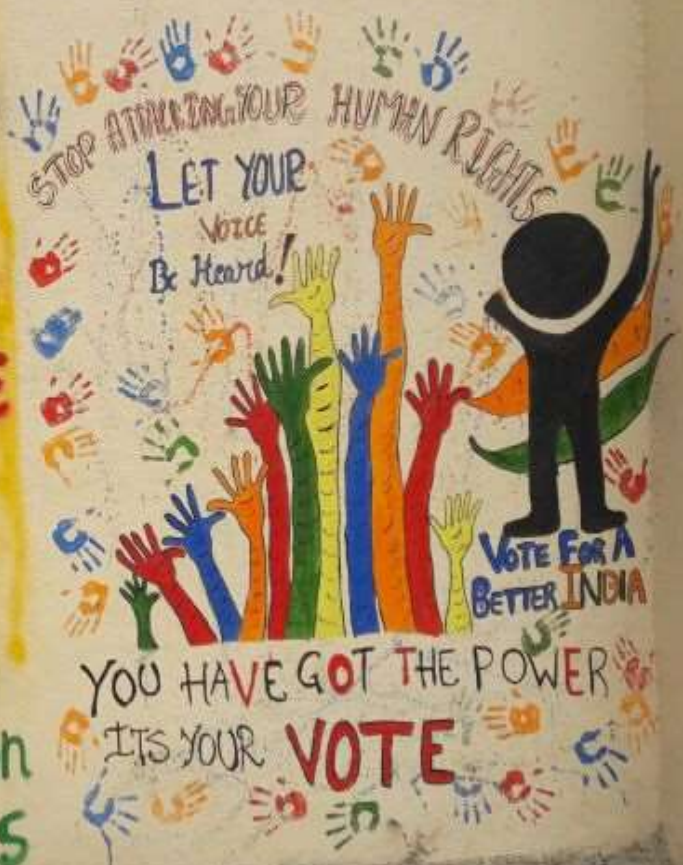 STOP ATTACKING YOUR HUMAN RIGHTS
LET YOUR
VOICE
Be Heard!
VOTE FOR A
BETTER INDIA
YOU HAVE GOT THE POWER
ITS YOUR VOTE
n
S